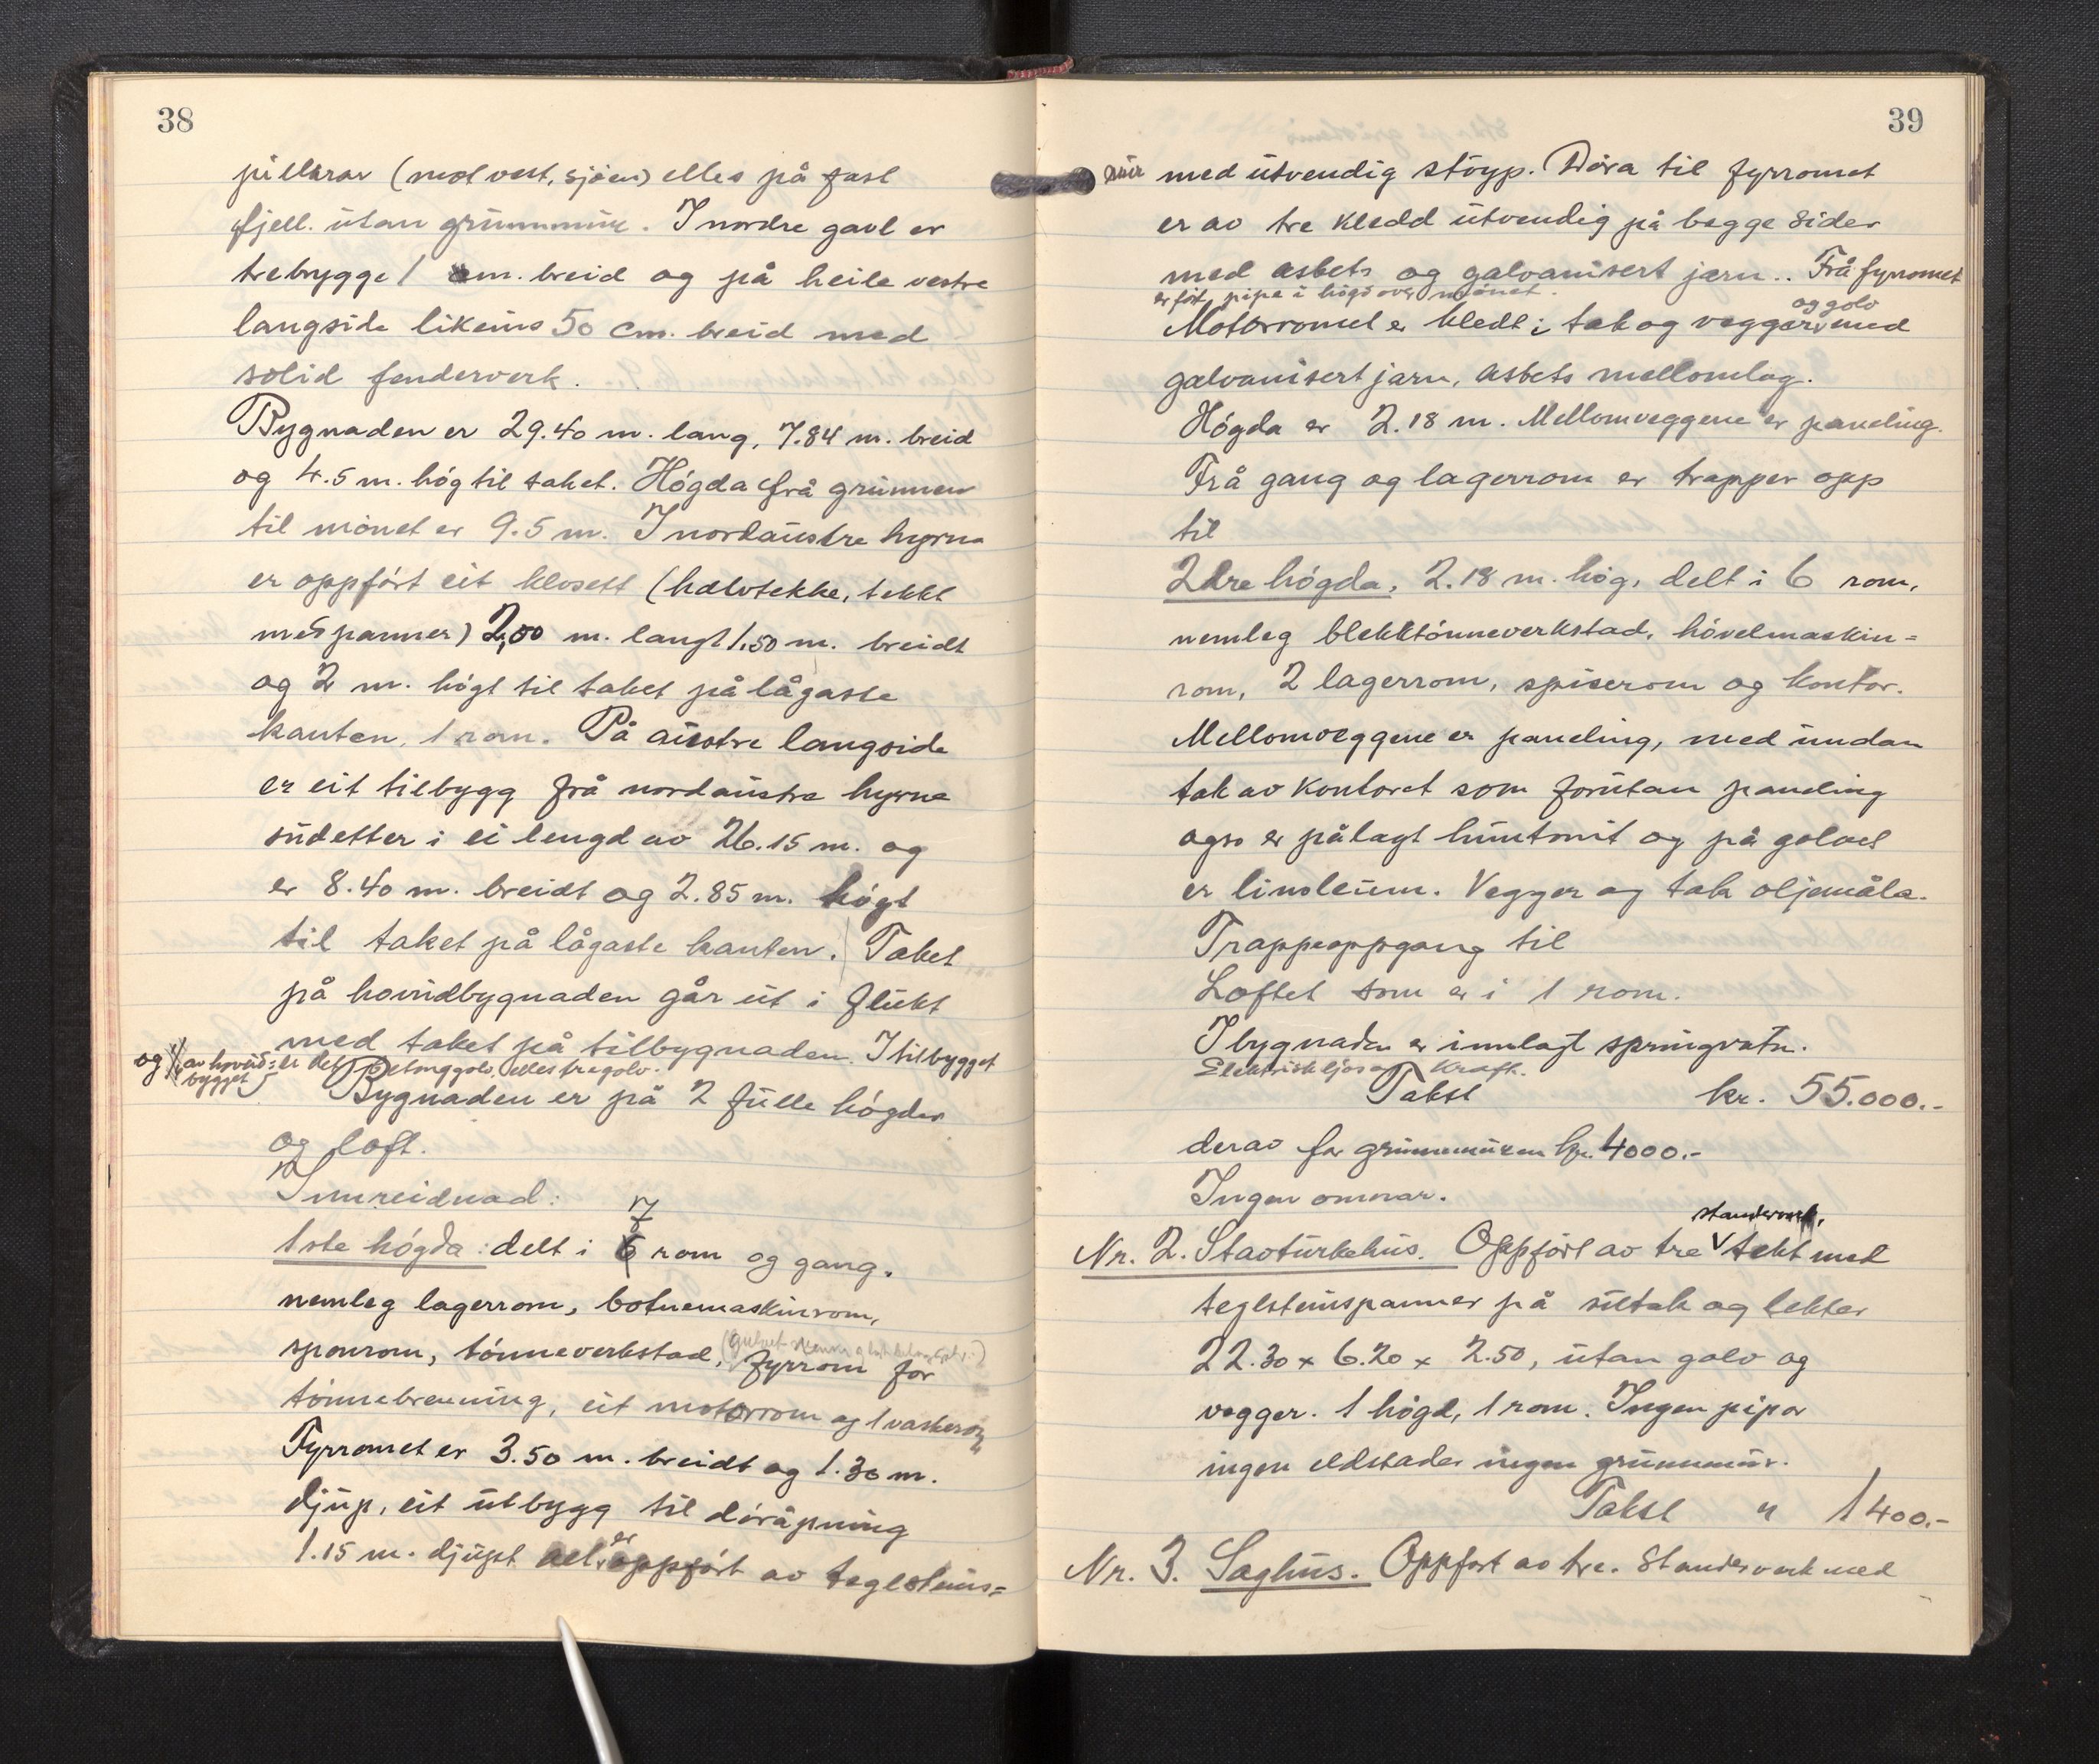 38
pillarar (mot vest, sjøen) elles på fast
fjell. utan grunnmur. I nordre gavl er
trebrygge 1 m. breid og på heile vestre
langside likeins 50 cm. breid med
solid fenderverk.
Bygnaden er 29.40 m. lang, 7.84 m. breid
og 4.5 m. høg til taket. Høgda frå grunnen
til mønet er 9.5 m. I nordaustre hyrna
er oppført eit klosett (halvtekke, tekt
med panner) 2,00 m. langt 1.50 m. breidt
og 2 m. høgt til taket på lågaste
kanten, 1 rom. På austre langside
er eit tilbygg frå nordaustre hyrna
sudetter i ei lengd av 26.15 m. og
er 8.40 m. breidt og 2.85 m. høgt
til taket på lågaste kanten. Taket
på hovudbygnaden går ut i flukt
med taket på tilbygnaden. I tilbygget
og av hovud= er det Betonggolv, elles tregolv.
bygget
Bygnaden er på 2 fulle høgder
og loft.
Innreidnad:
7
1ste høgda: delt i 6 rom og gang.
nemleg lagerrom, botnemaskinrom,
sponrom, tønneverkstad, fyrrom for
tønnebrenning, eit motorrom og 1 vaskerom
Fyrromet er 3.50 m. breidt og 1.30 m.
djup, eit utbygg til døråpning
1.15 m. djupt er oppført av teglsteins=
39
mur med utvendig støyp. Døra til fyrromet
er av tre kledd utvendig på begge sider
med asbets og galvanisert jarn.. Frå fyrromet
er ført pipe i høgd over mønet.
og golv
Motorromet er kledt i tak og veggar med
galvanisert jarn, asbets mellomlag.
Høgda er 2.18 m. Mellomveggene er paneling.
Frå gang og lagerrom er trapper opp
til
2dre høgda, 2.18 m. høg, delt i 6 rom,
nemleg blekktønneverkstad, hövelmaskin=
rom, 2 lagerrom, spiserom og kontor.
Mellomveggene er paneling, med undan
tak av kontoret som forutan paneling
ogso er pålagt huntonit og på golvet
er linoleum. Vegger og tak oljemåla.
Trappeoppgang til
Loftet som er i 1 rom.
I bygnaden er innlagt springvatn.
Elektrisk ljos og Kraft.
Takst kr. 55.000.-
derav for grunnmuren kr. 4000.-
Ingen omnar.
standerverk,
Nr. 2. Stavturkehus. Oppført av tre tekt med
teglsteinspanner på sutak og lekter
22.30 x 6.20 x 2.50, utan golv og
vegger. 1 høgd, 1 rom. Ingen pipor
ingen eldstader ingen grunnmur.
Takst " 1400.-
Nr. 3. Saghus. Oppført av tre. Standerverk med